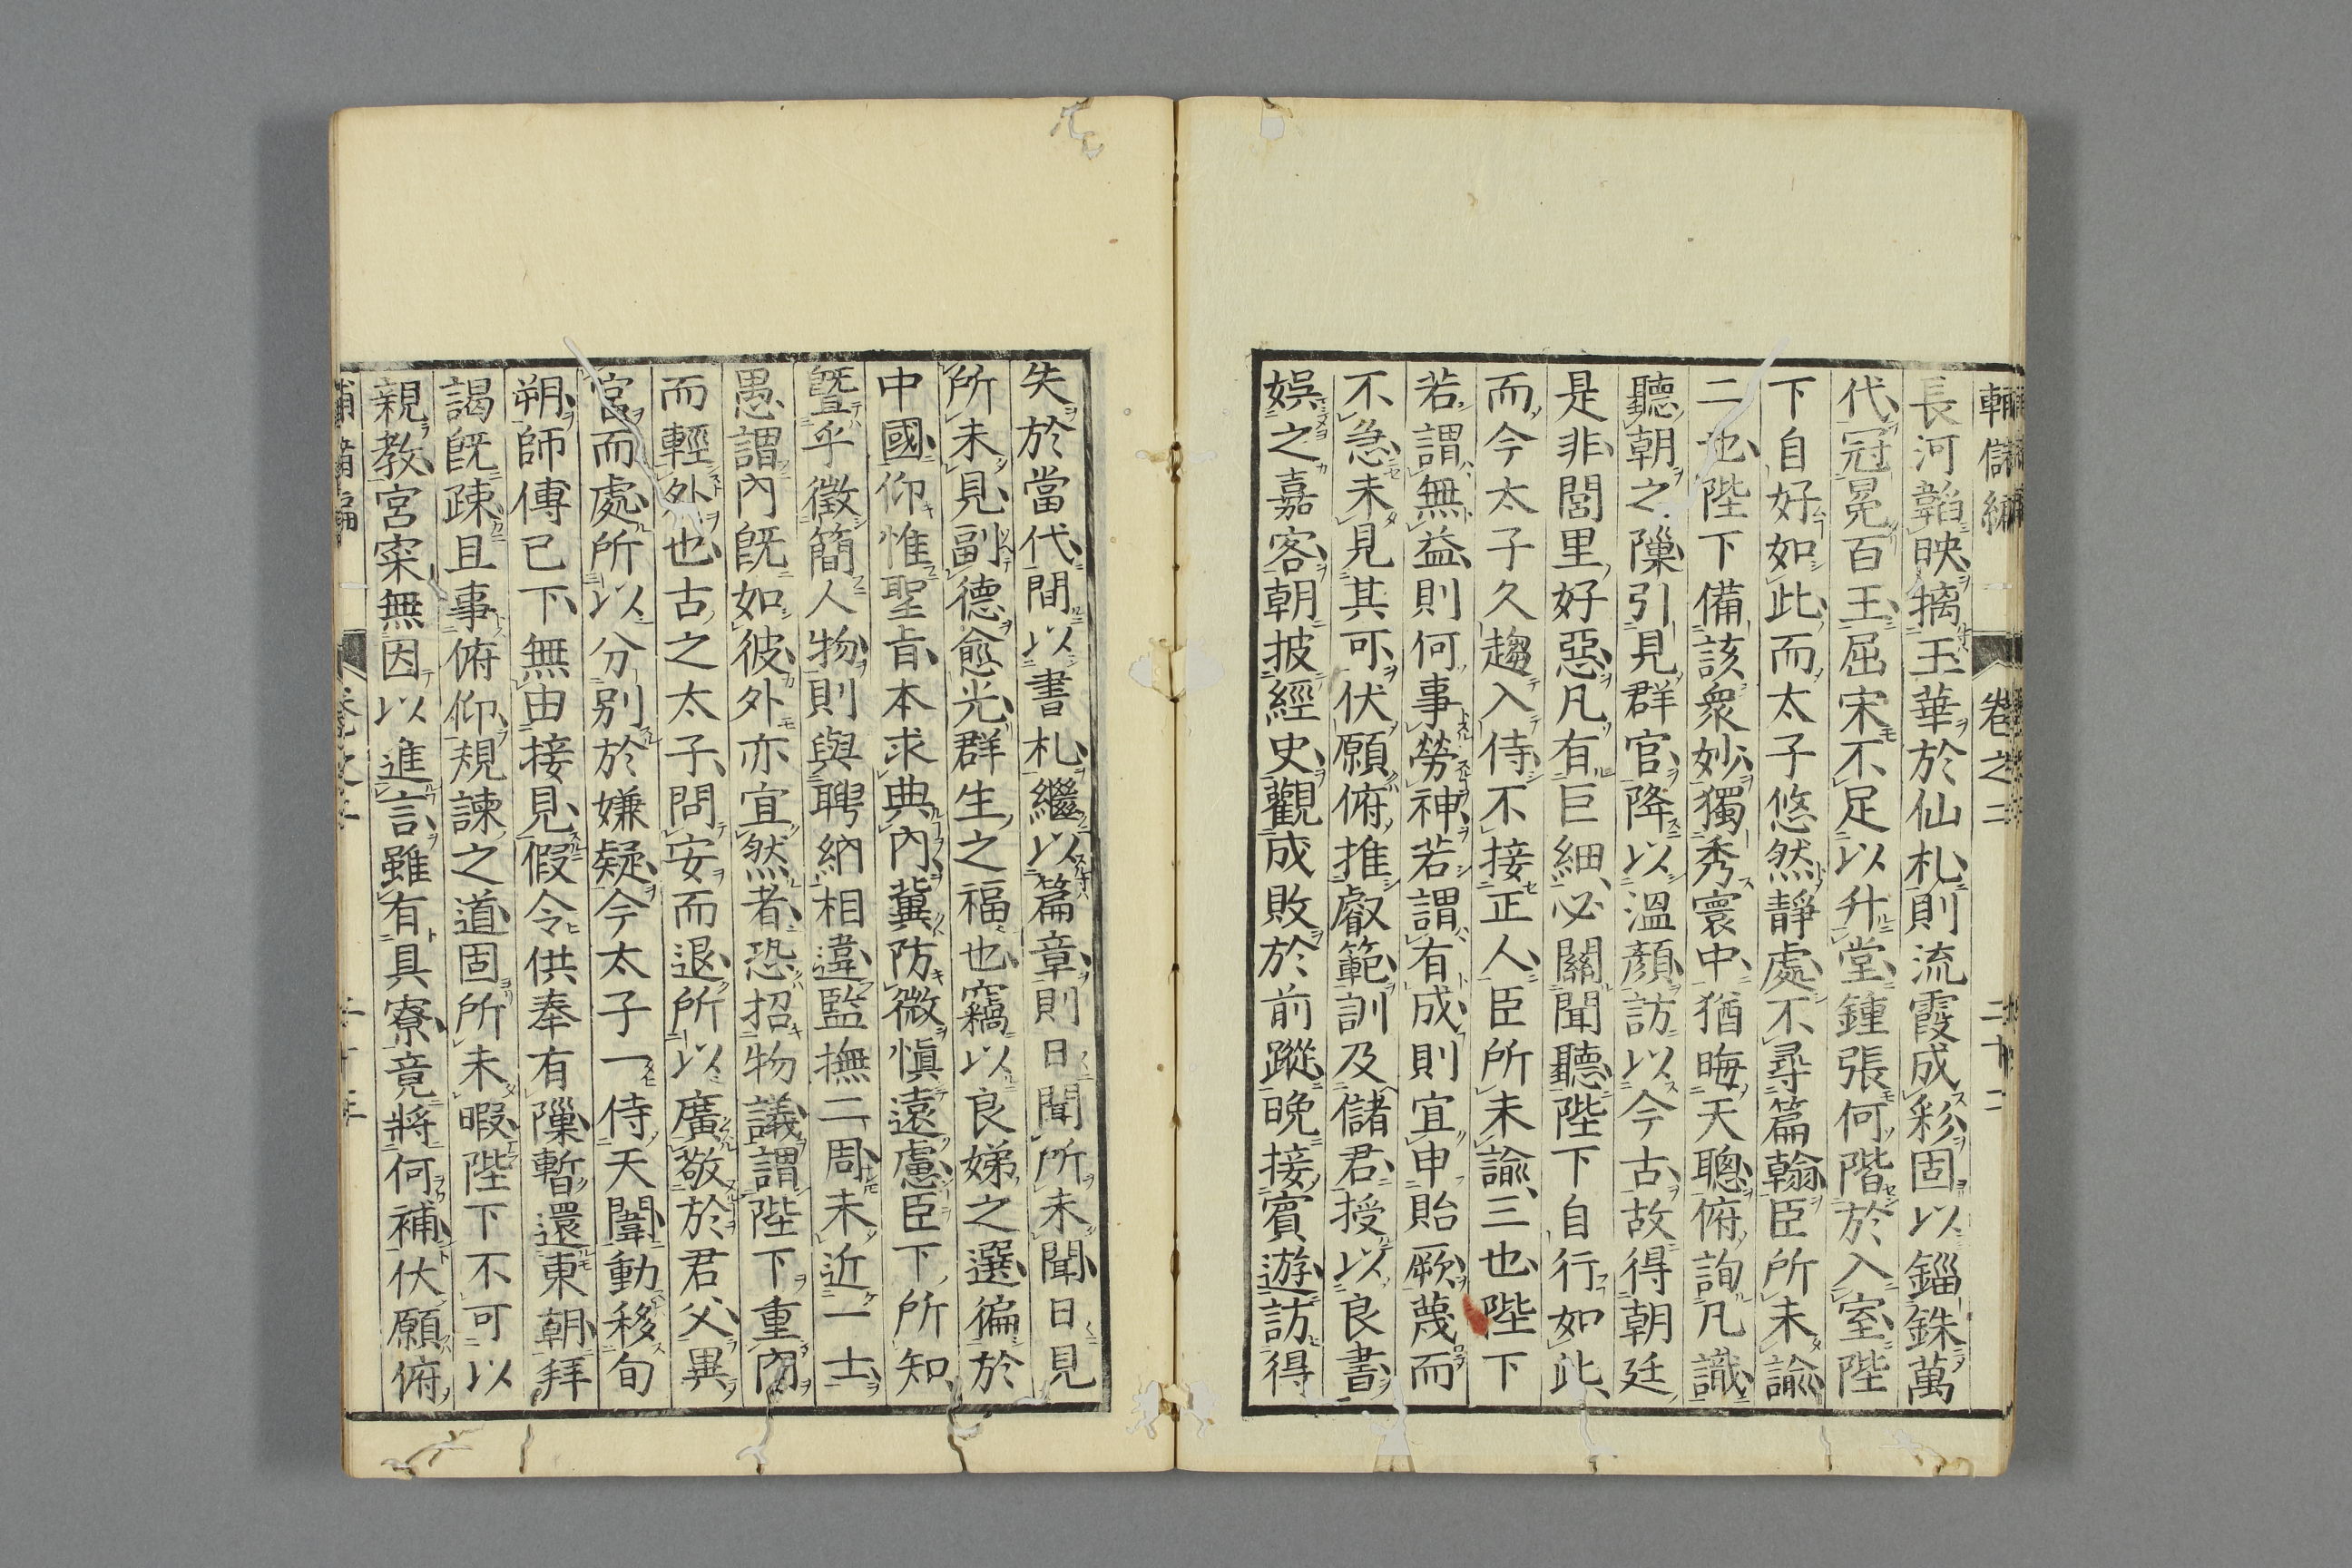 輔儲編 卷之二 二十二
長河韜映摛玉華於仙札則流霞成彩固以錙銖萬
代冠冕百王屈宋不足以升堂鍾張何階於入室陛
下自好如此而太子悠然靜處不尋篇翰臣所未諭
二也陛下備該衆妙獨秀寰中猶晦天聰俯詢凡識
聽朝之隟引見群官降以溫顏訪以今古故得朝廷
是非閭里好惡凡有巨細必關聞聽陛下自行如此
而今太子久趨入侍不接正人臣所未諭三也陛下
若謂無益則何事勞神若謂有成則宜申貽厥蔑而
不急未見其可伏願俯推叡範訓及儲君授以良書
娯之嘉客朝披經史觀成敗於前蹤晩接賓遊訪得
失於當代間以書札繼以篇章則日聞所未聞日見
所未見副德愈光群生之福也竊以良娣之選徧於
中國仰惟聖㫖本求典內冀防微愼遠慮臣下所知
曁乎徵簡人物則與聘納相違監撫二周未近一士
愚謂內旣如彼外亦宜然者恐招物議謂陛下重內
而輕外也古之太子問安而退所以廣敬於君父異
宮而處所以分別於嫌疑今太子一侍天闈動移旬
朔師傅已下無由接見假令供奉有隟暫還東朝拜
謁旣疎且事俯仰規諫之道固所未暇陛下不可以
親教宮寀無因以進言雖有具寮竟將何補伏願俯